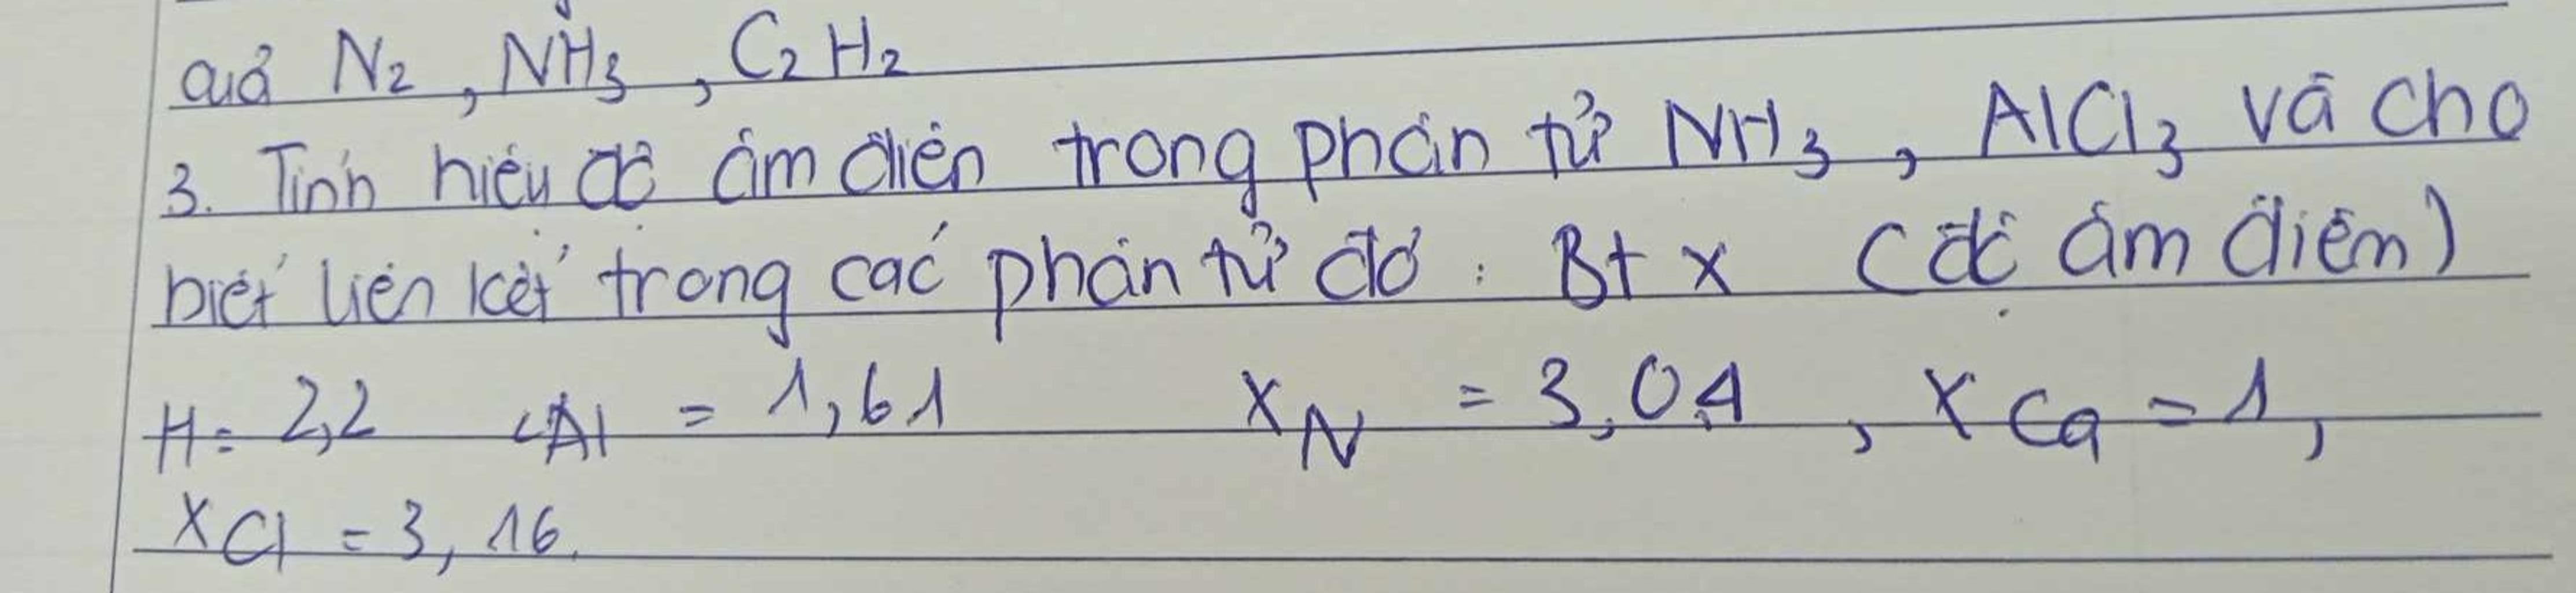 quả N₂, NH₃, C₂H₂
3. Tính hiệu độ âm điện trong phân tử NH₃, AlCl₃ và cho
biết liên kết trong các phân tử đó : Bt x (độ âm điện)
H = 2,2 Al = 1,61 x N = 3,04, x Ca = 1,
x Cl = 3,16.